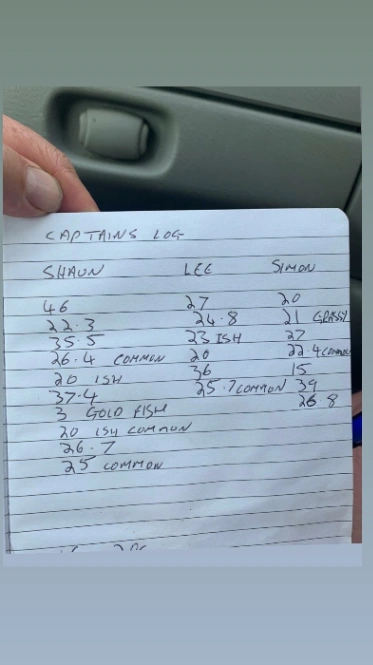 CAPTAINS LOG
SHAUN LEE SIMON
46 27 20
22.3 24.8 21 GRASSY
35.5 23 ISH 27
26.4 COMMON 20 22.4 COMMON
20 ISH 36 15
37.4 25.7 COMMON 39
3 GOLD FISH 26 8
20 ISH COMMON
26.7
25 COMMON